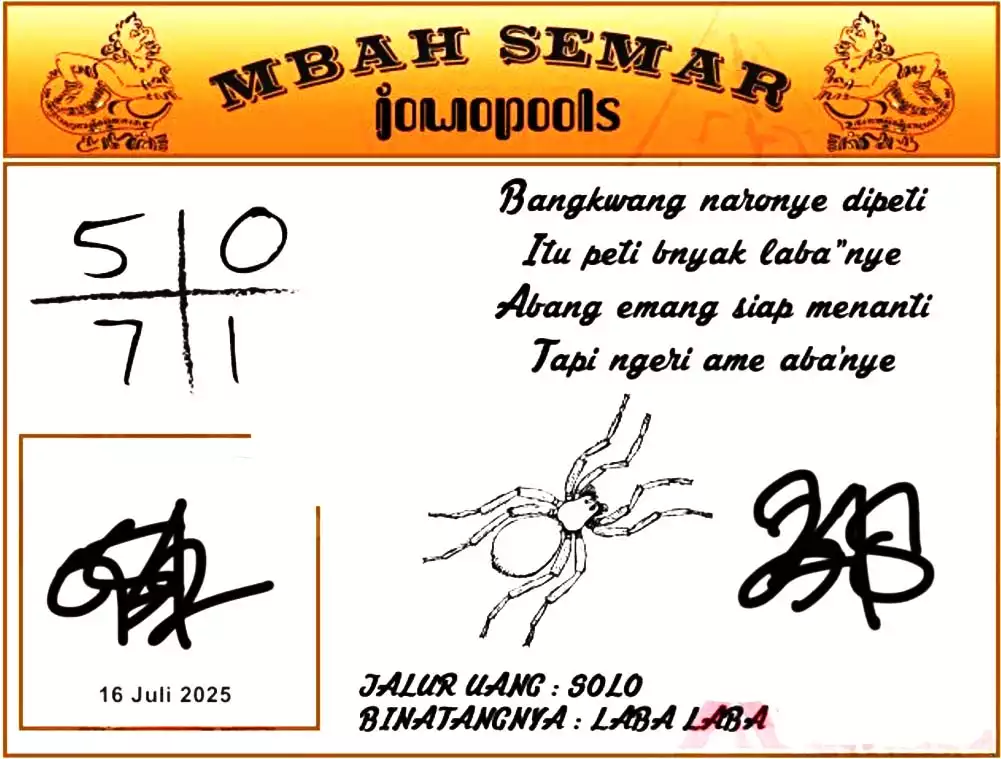 MBAH SEMAR
jowopools
5 0
7 1
Bangkwang naronye dipeti
Itu peti bnyak laba"nye
Abang emang siap menanti
Tapi ngeri ame aba'nye
16 Juli 2025
JALUR UANG : SOLO
BINATANGNYA : LABA LABA